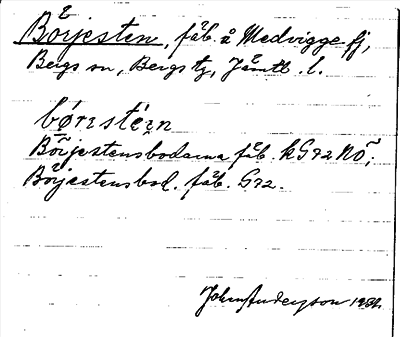 Börjesten, fäb. å Medvigge fj,
Bergs sn, Bergs tg, Jämtl. l.
bø̄rɪstéɪn
Börjestensbodarna fäb. kG72 NÖ;
Börjestensbod. fäb. G72.
John Anderzson 1932